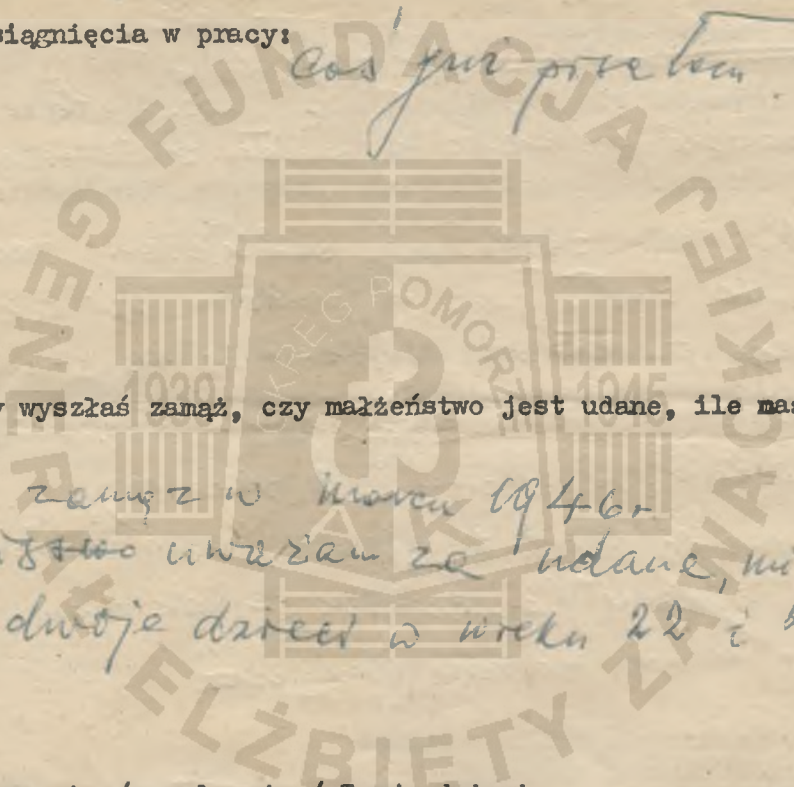 siągnięcia w pracy:
coś już pisałam
y wyszłaś zamąż, czy małżeństwo jest udane, ile mas
zamąż w marcu 1946r
uważam za udane,
dwoje dzieci w wieku 22 i
FUNDACJA GENERAŁ ELŻBIETY ZAWACKIEJ
OKRĘG POMORZE
1939 1945
AK